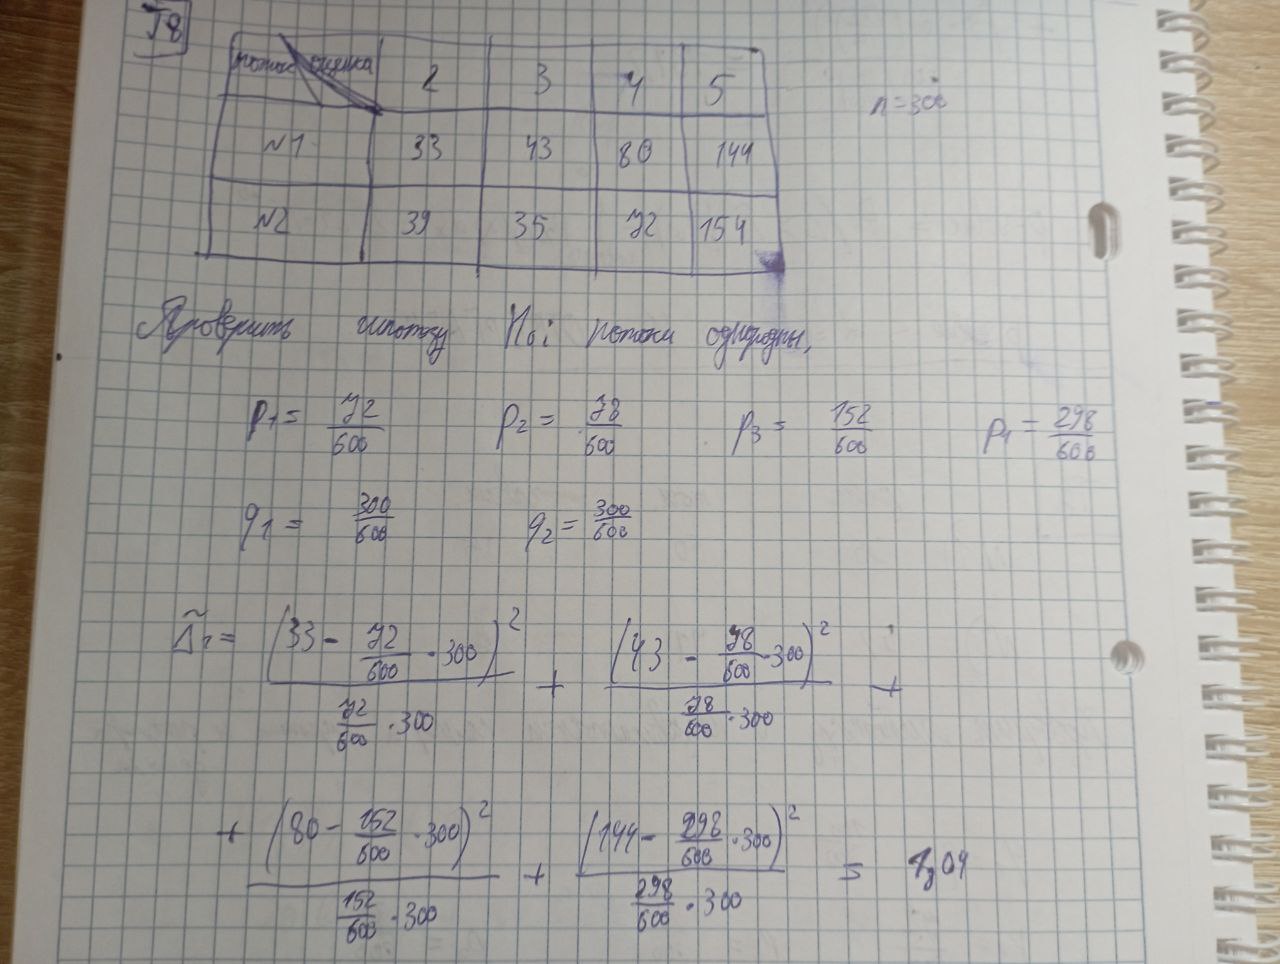 T8
поток оценка 2 3 4 5
n=300
№1 33 43 80 144
№2 39 35 72 154
Проверить гипотезу H₀: потоки однородны,
p₁ = 72/600 p₂ = 78/600 p₃ = 152/600 p₄ = 298/600
q₁ = 300/600 q₂ = 300/600
Δ̃₂ = (33 - 72/600 · 300)² / (72/600 · 300) + (43 - 78/600 · 300)² / (78/600 · 300) +
+ (80 - 152/600 · 300)² / (152/600 · 300) + (144 - 298/600 · 300)² / (298/600 · 300) =